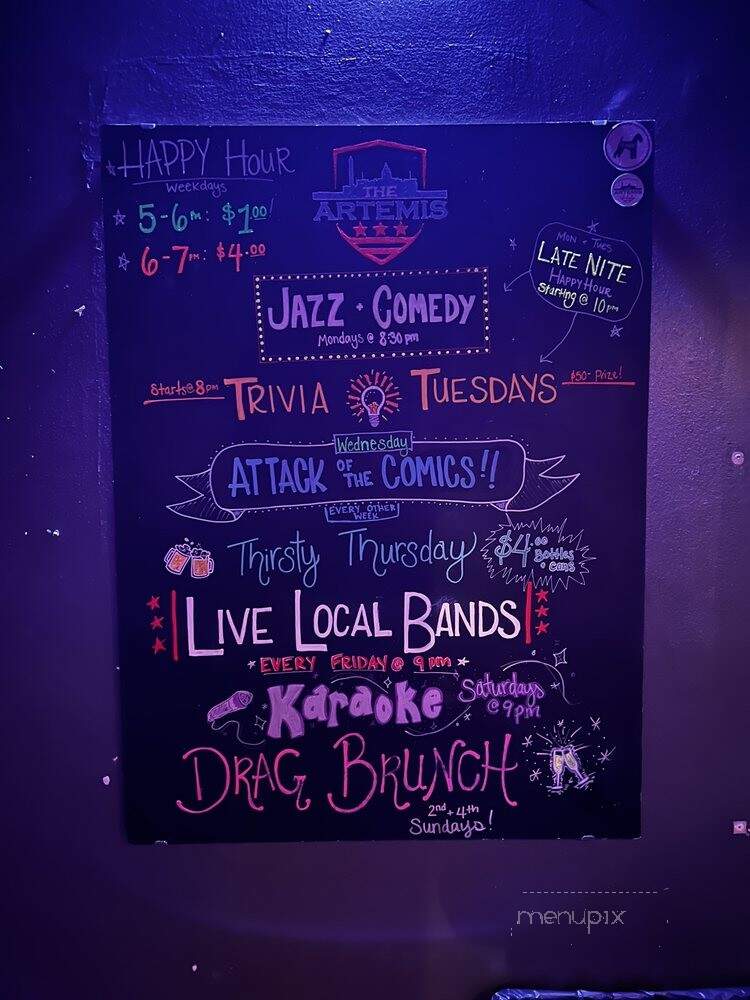 HAPPY HOUR
Weekdays
5-6pm: $1.00!
6-7pm: $4.00
THE
ARTEMIS
MON + TUES
LATE NITE
HAPPY HOUR
Starting @ 10pm
JAZZ + COMEDY
Mondays @ 8:30pm
Starts @ 8pm TRIVIA TUESDAYS $50- Prize!
Wednesday
ATTACK OF THE COMICS!!
EVERY OTHER
WEEK
Thirsty Thursday $4.00 Bottles + Cans
LIVE LOCAL BANDS
EVERY FRIDAY @ 9pm
Karaoke Saturdays @ 9pm
DRAG BRUNCH
2nd + 4th
Sundays!
menupix